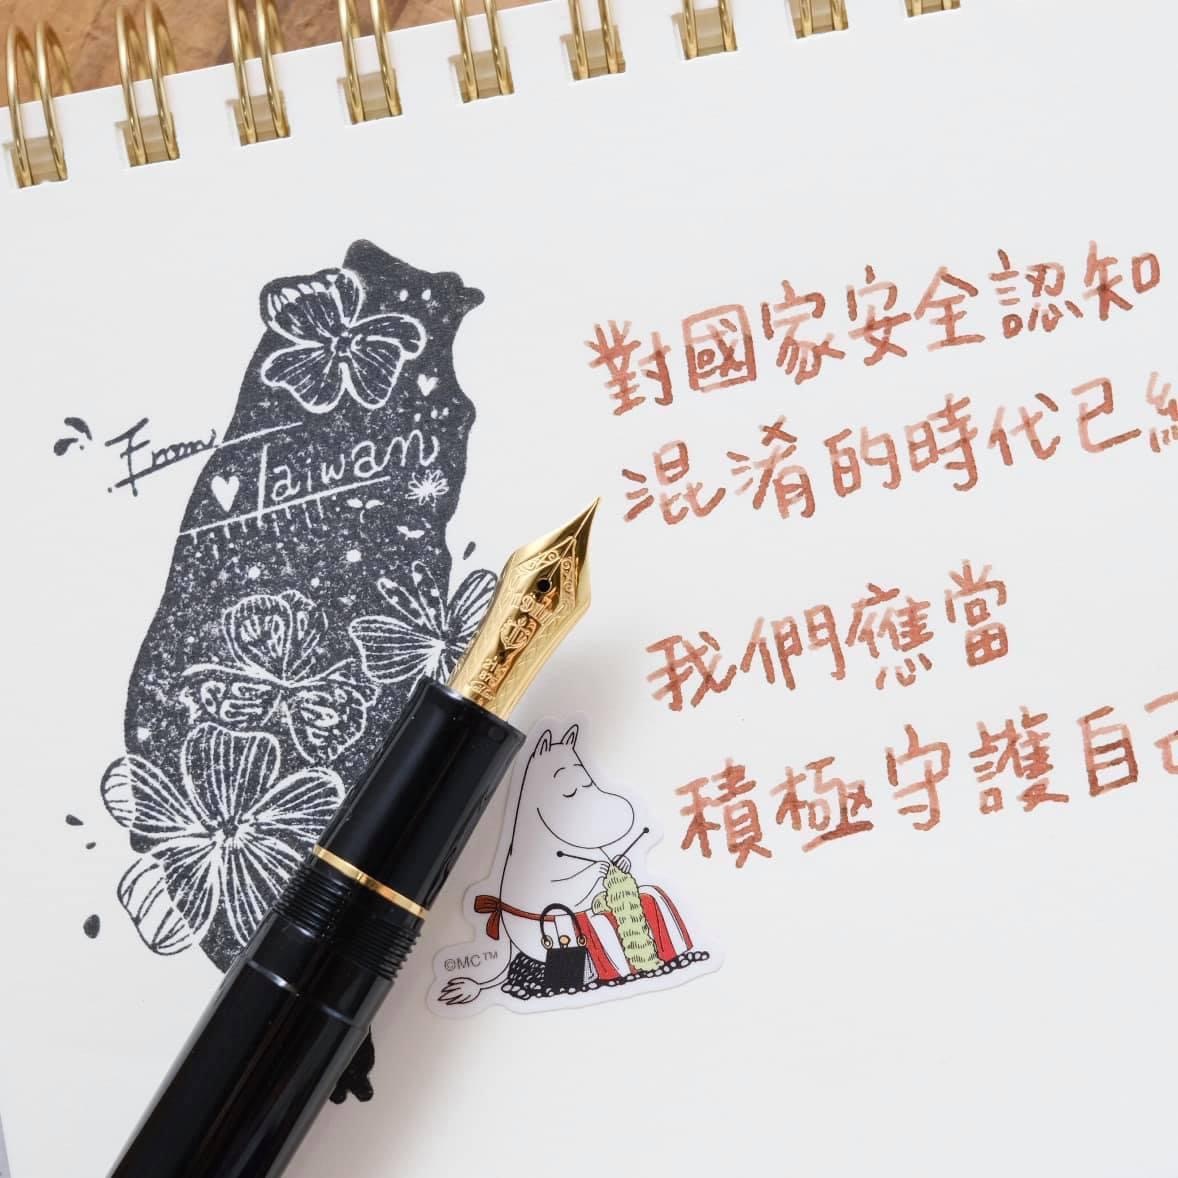 From Taiwan
對國家安全認知
混淆的時代已
我們應當
積極守護自己
21
875
©MC™